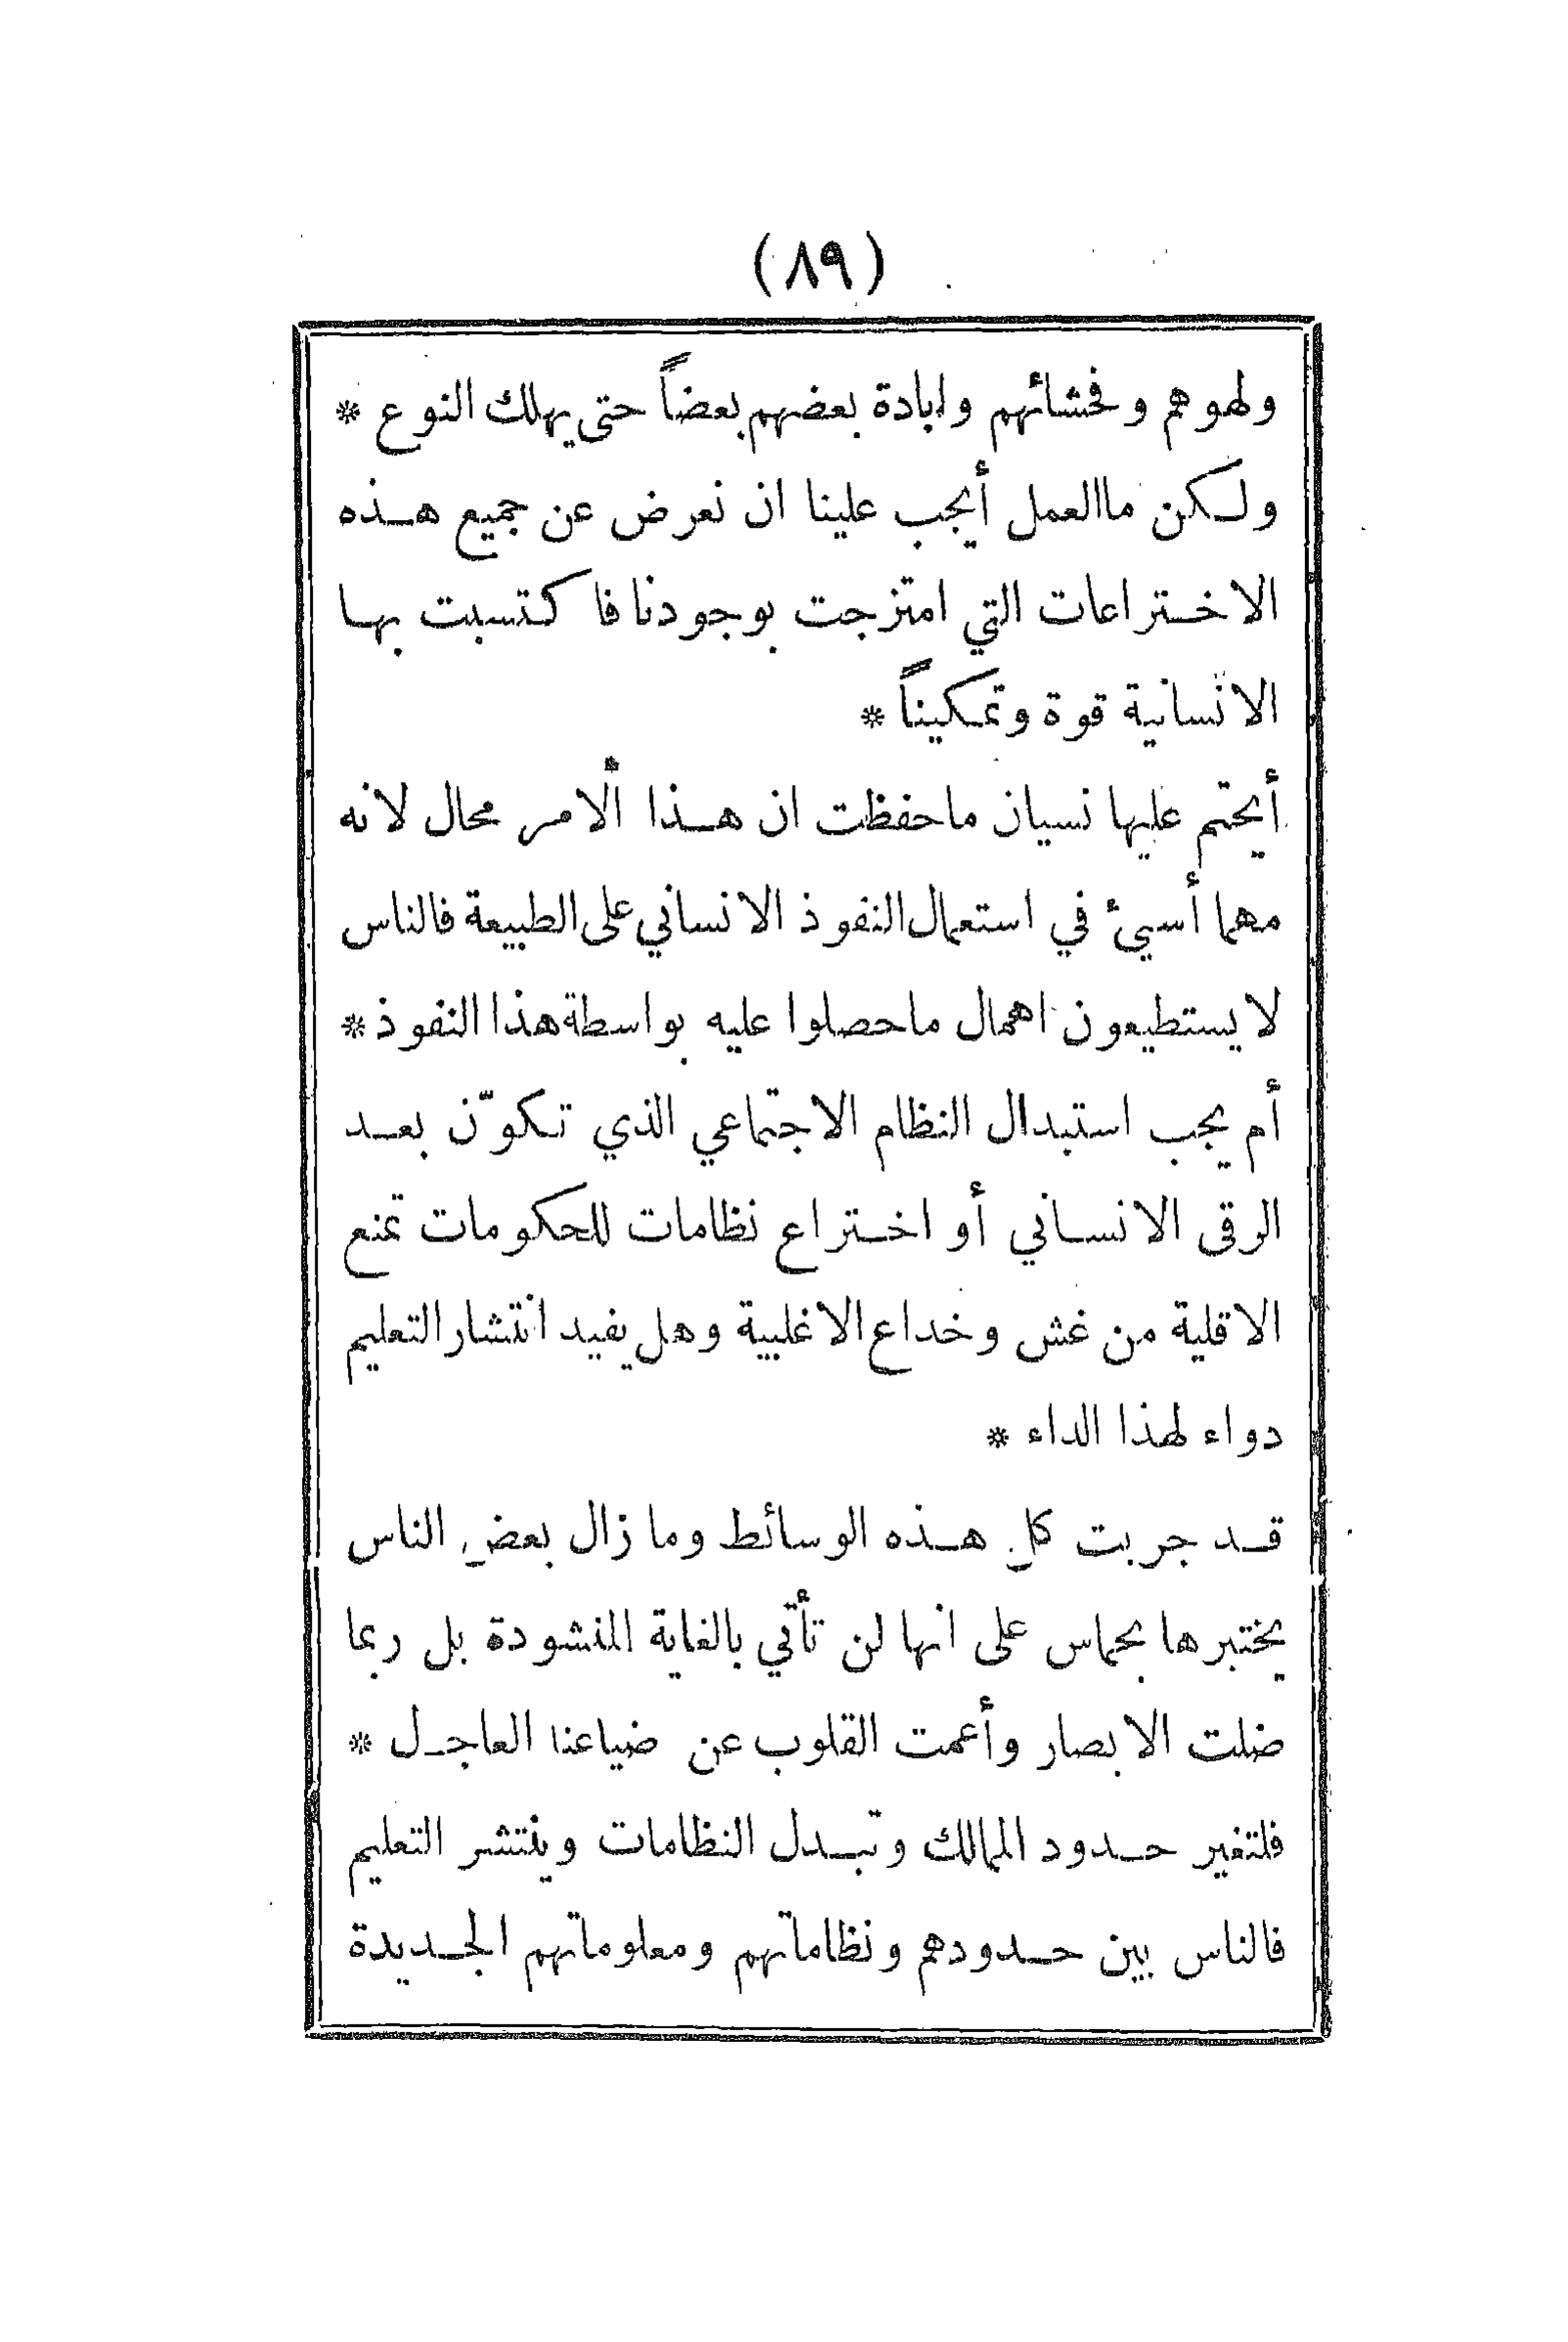 (٨٩)
ولهوهم وفحشائهم وابادة بعضهم بعضاً حتى يهلك النوع *
ولكن ماالعمل أيجب علينا ان نعرض عن جميع هذه
الاختراعات التي امتزجت بوجودنا فاكتسبت بها
الانسانية قوة وتمكيناً *
أيحتم عليها نسيان ماحفظت ان هذا ألامر محال لانه
مهما أسيئ في استعمال النفوذ الانساني على الطبيعة فالناس
لايستطيعون اهمال ماحصلوا عليه بواسطة هذا النفوذ *
أم يجب استبدال النظام الاجتماعي الذي تكوّن بعد
الرقى الانساني أو اختراع نظامات للحكومات تمنع
الاقلية من غش وخداع الاغلبية وهل يفيد انتشار التعليم
دواء لهذا الداء *
قد جربت كل هذه الوسائط وما زال بعض الناس
يختبرها بحماس على انها لن تأتي بالغاية المنشودة بل ربما
ضلت الابصار وأعمت القلوب عن ضياعنا العاجل *
فلتغير حدود الممالك وتبدل النظامات وينتشر التعليم
فالناس بين حدودهم ونظاماتهم ومعلوماتهم الجديدة